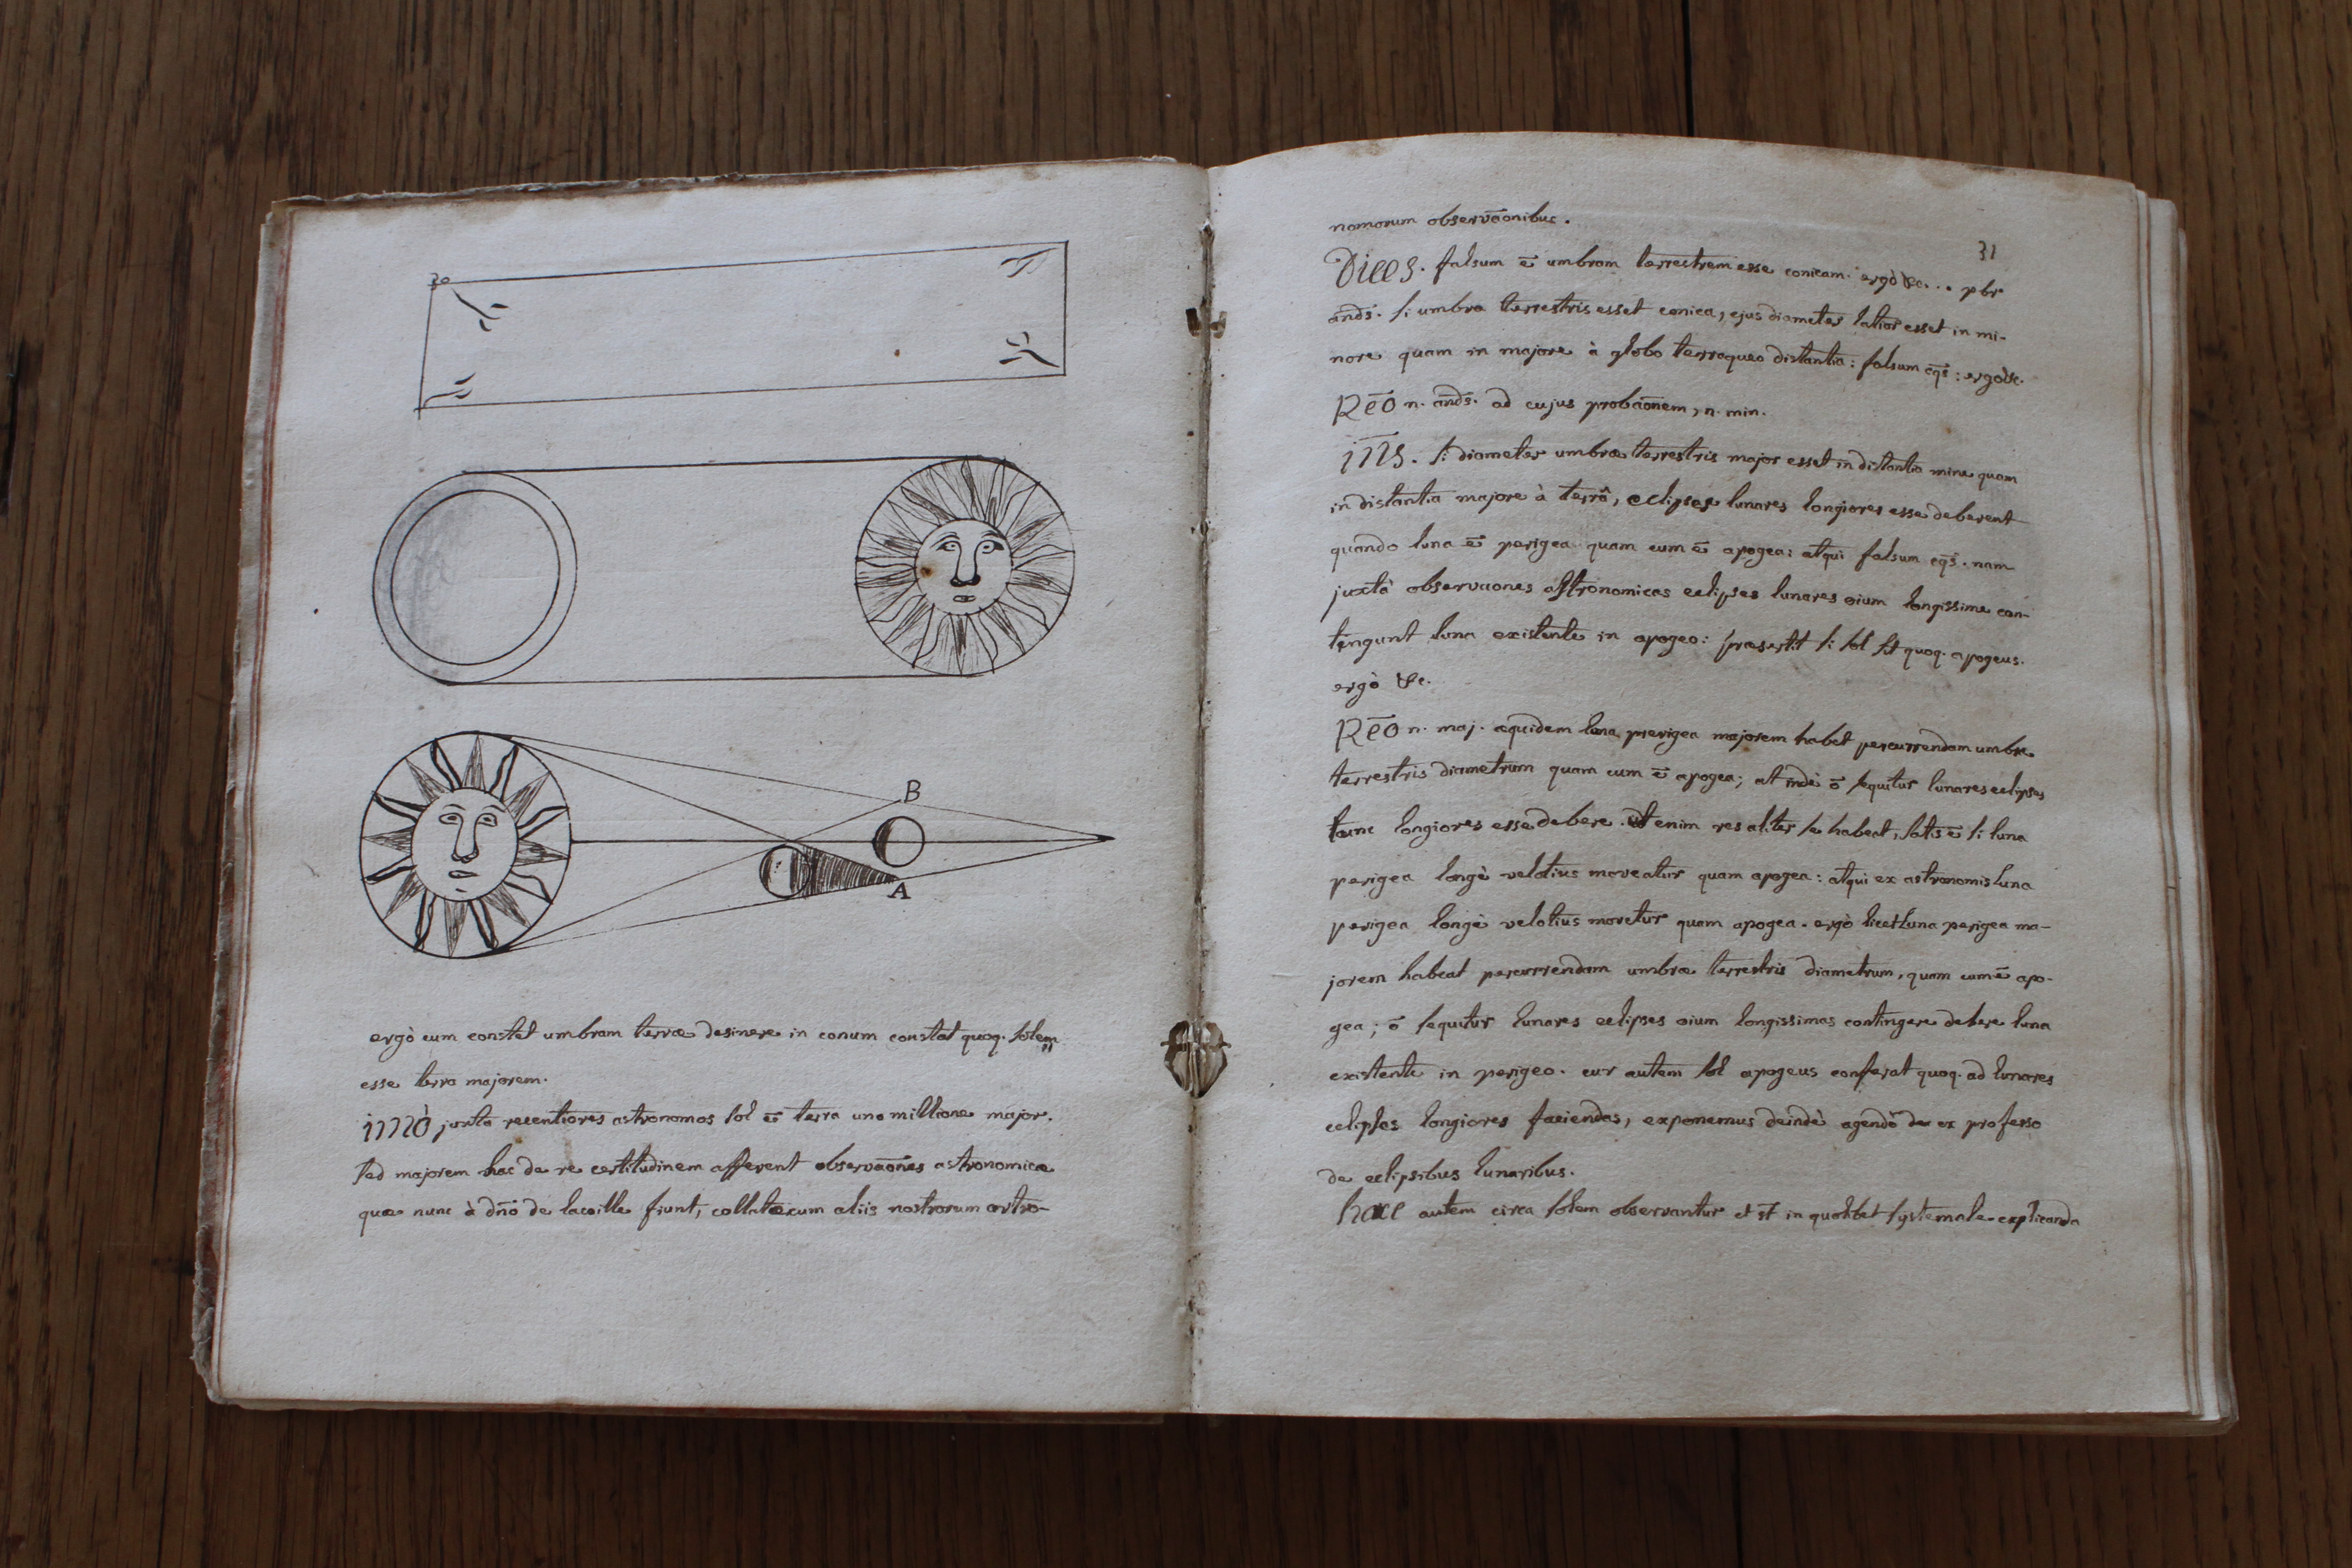 30
B
A
ergò cum constet umbram terræ desinere in conum constat quoq. solem
esse terra majorem.
imò juxta recentiores astronomos sol ē terra uno millione major.
sed majorem hac de re certitudinem afferent observaōnes astronomicæ
quæ nunc à dño de lacaille fiunt, collatæ cum aliis nostrorum astro-
nomorum observāonibus.
31
Dices. falsum ē umbram terrestrem esse conicam. ergò &c... pbr
añds. si umbra terrestris esset conica, ejus diameter latior esset in mi-
nore quam in majore à globo terraqueo distantia: falsum cq̄s: ergo &c.
Rēo n. añds. ad cujus probāonem, n. min.
īns. si diameter umbræ terrestris major esset in distantia minre quam
in distantia majore à terrâ, eclipses lunares longiores esse deberent
quando luna ē perigea quam cum ē apogea: atqui falsum cq̄s. nam
juxtà observaones astronomicas eclipses lunares oium longissimæ con-
tingunt luna existente in apogeo: præsertit si sol sit quoq. apogeus.
ergò &c.
Rēo n. maj. æquidem luna perigea majorem habet percurrendam umbræ
terrestris diametrum quam cum ē apogea; at indè ō sequitur lunares eclipses
tunc longiores esse debere. ut enim res aliter se habeat, satis ē si luna
perigea longè velotius moveatur quam apogea: atqui ex astronomis luna
perigea longè velotius movetur quam apogea. ergò licet luna perigea ma-
jorem habeat percurrendam umbræ terrestris diametrum, quam cum ē apo-
gea; ō sequitur lunares eclipses oium longissimas contingere debere luna
existente in perigeo. cur autem sol apogeus conferat quoq. ad lunares
eclipses longiores faciendas, exponemus deindè agendò de ex professo
de eclipsibus lunaribus.
hæc autem circa solem observantur et st̄ in quolibet systemate explicanda